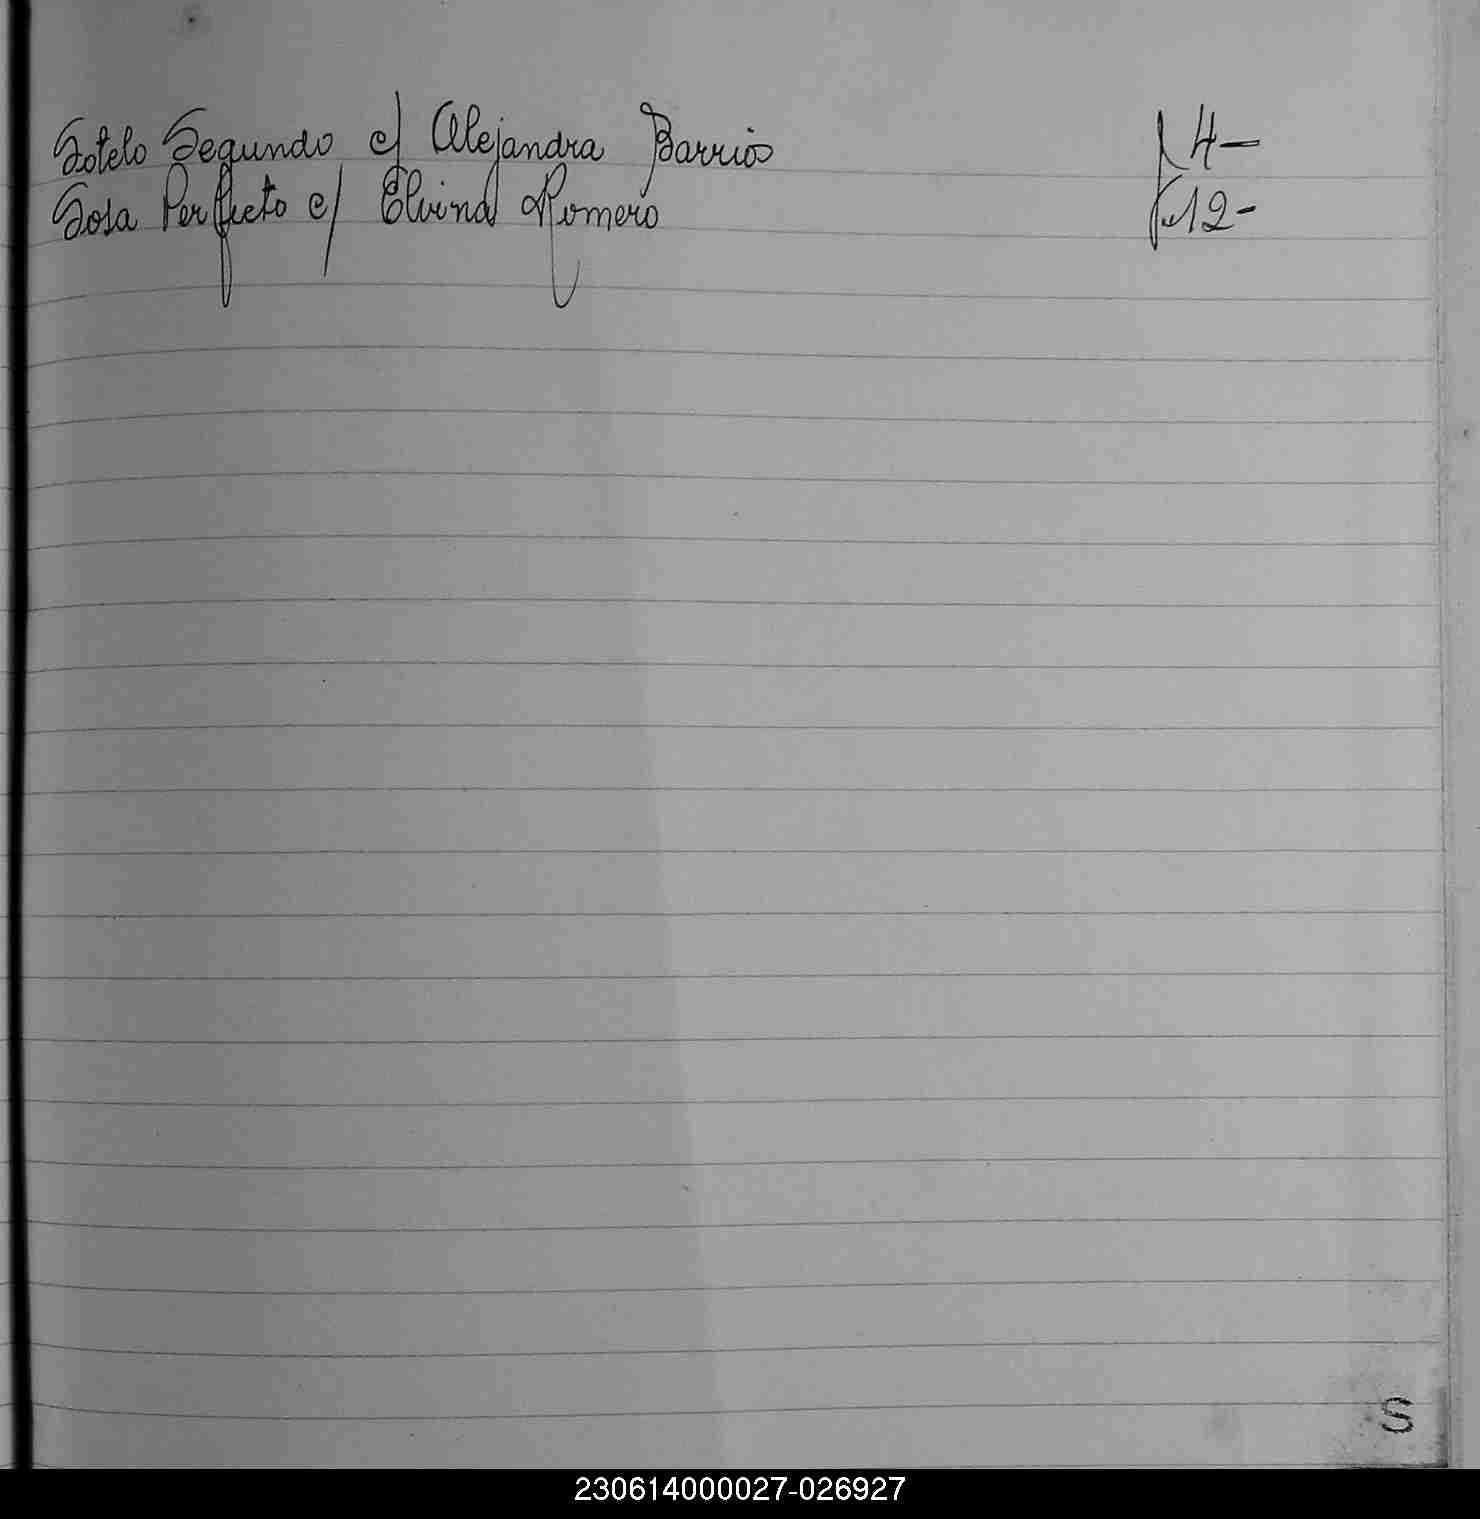 Sotelo Segundo c/ Alejandra Barrios 4-
Sosa Perfecto c/ Elvina Romero 12-
S
230614000027-026927